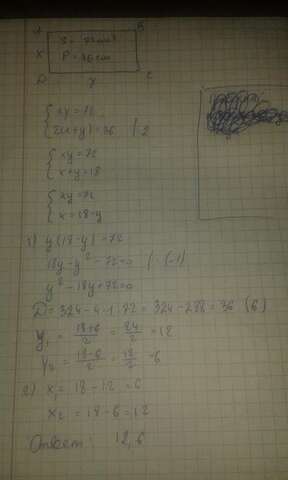 A B
S = 72 см²
x P = 36 см
D y C
{ xy = 72
{ 2(x+y) = 36 | :2
{ xy = 72
{ x+y = 18
{ xy = 72
{ x = 18-y
1) y(18-y) = 72
18y - y² - 72 = 0 | ·(-1)
y² - 18y + 72 = 0
D = 324 - 4·1·72 = 324 - 288 = 36 (6)
y₁ = (18+6)/2 = 24/2 = 12
y₂ = (18-6)/2 = 12/2 = 6
2) x₁ = 18 - 12 = 6
x₂ = 18 - 6 = 12
Ответ: 12, 6